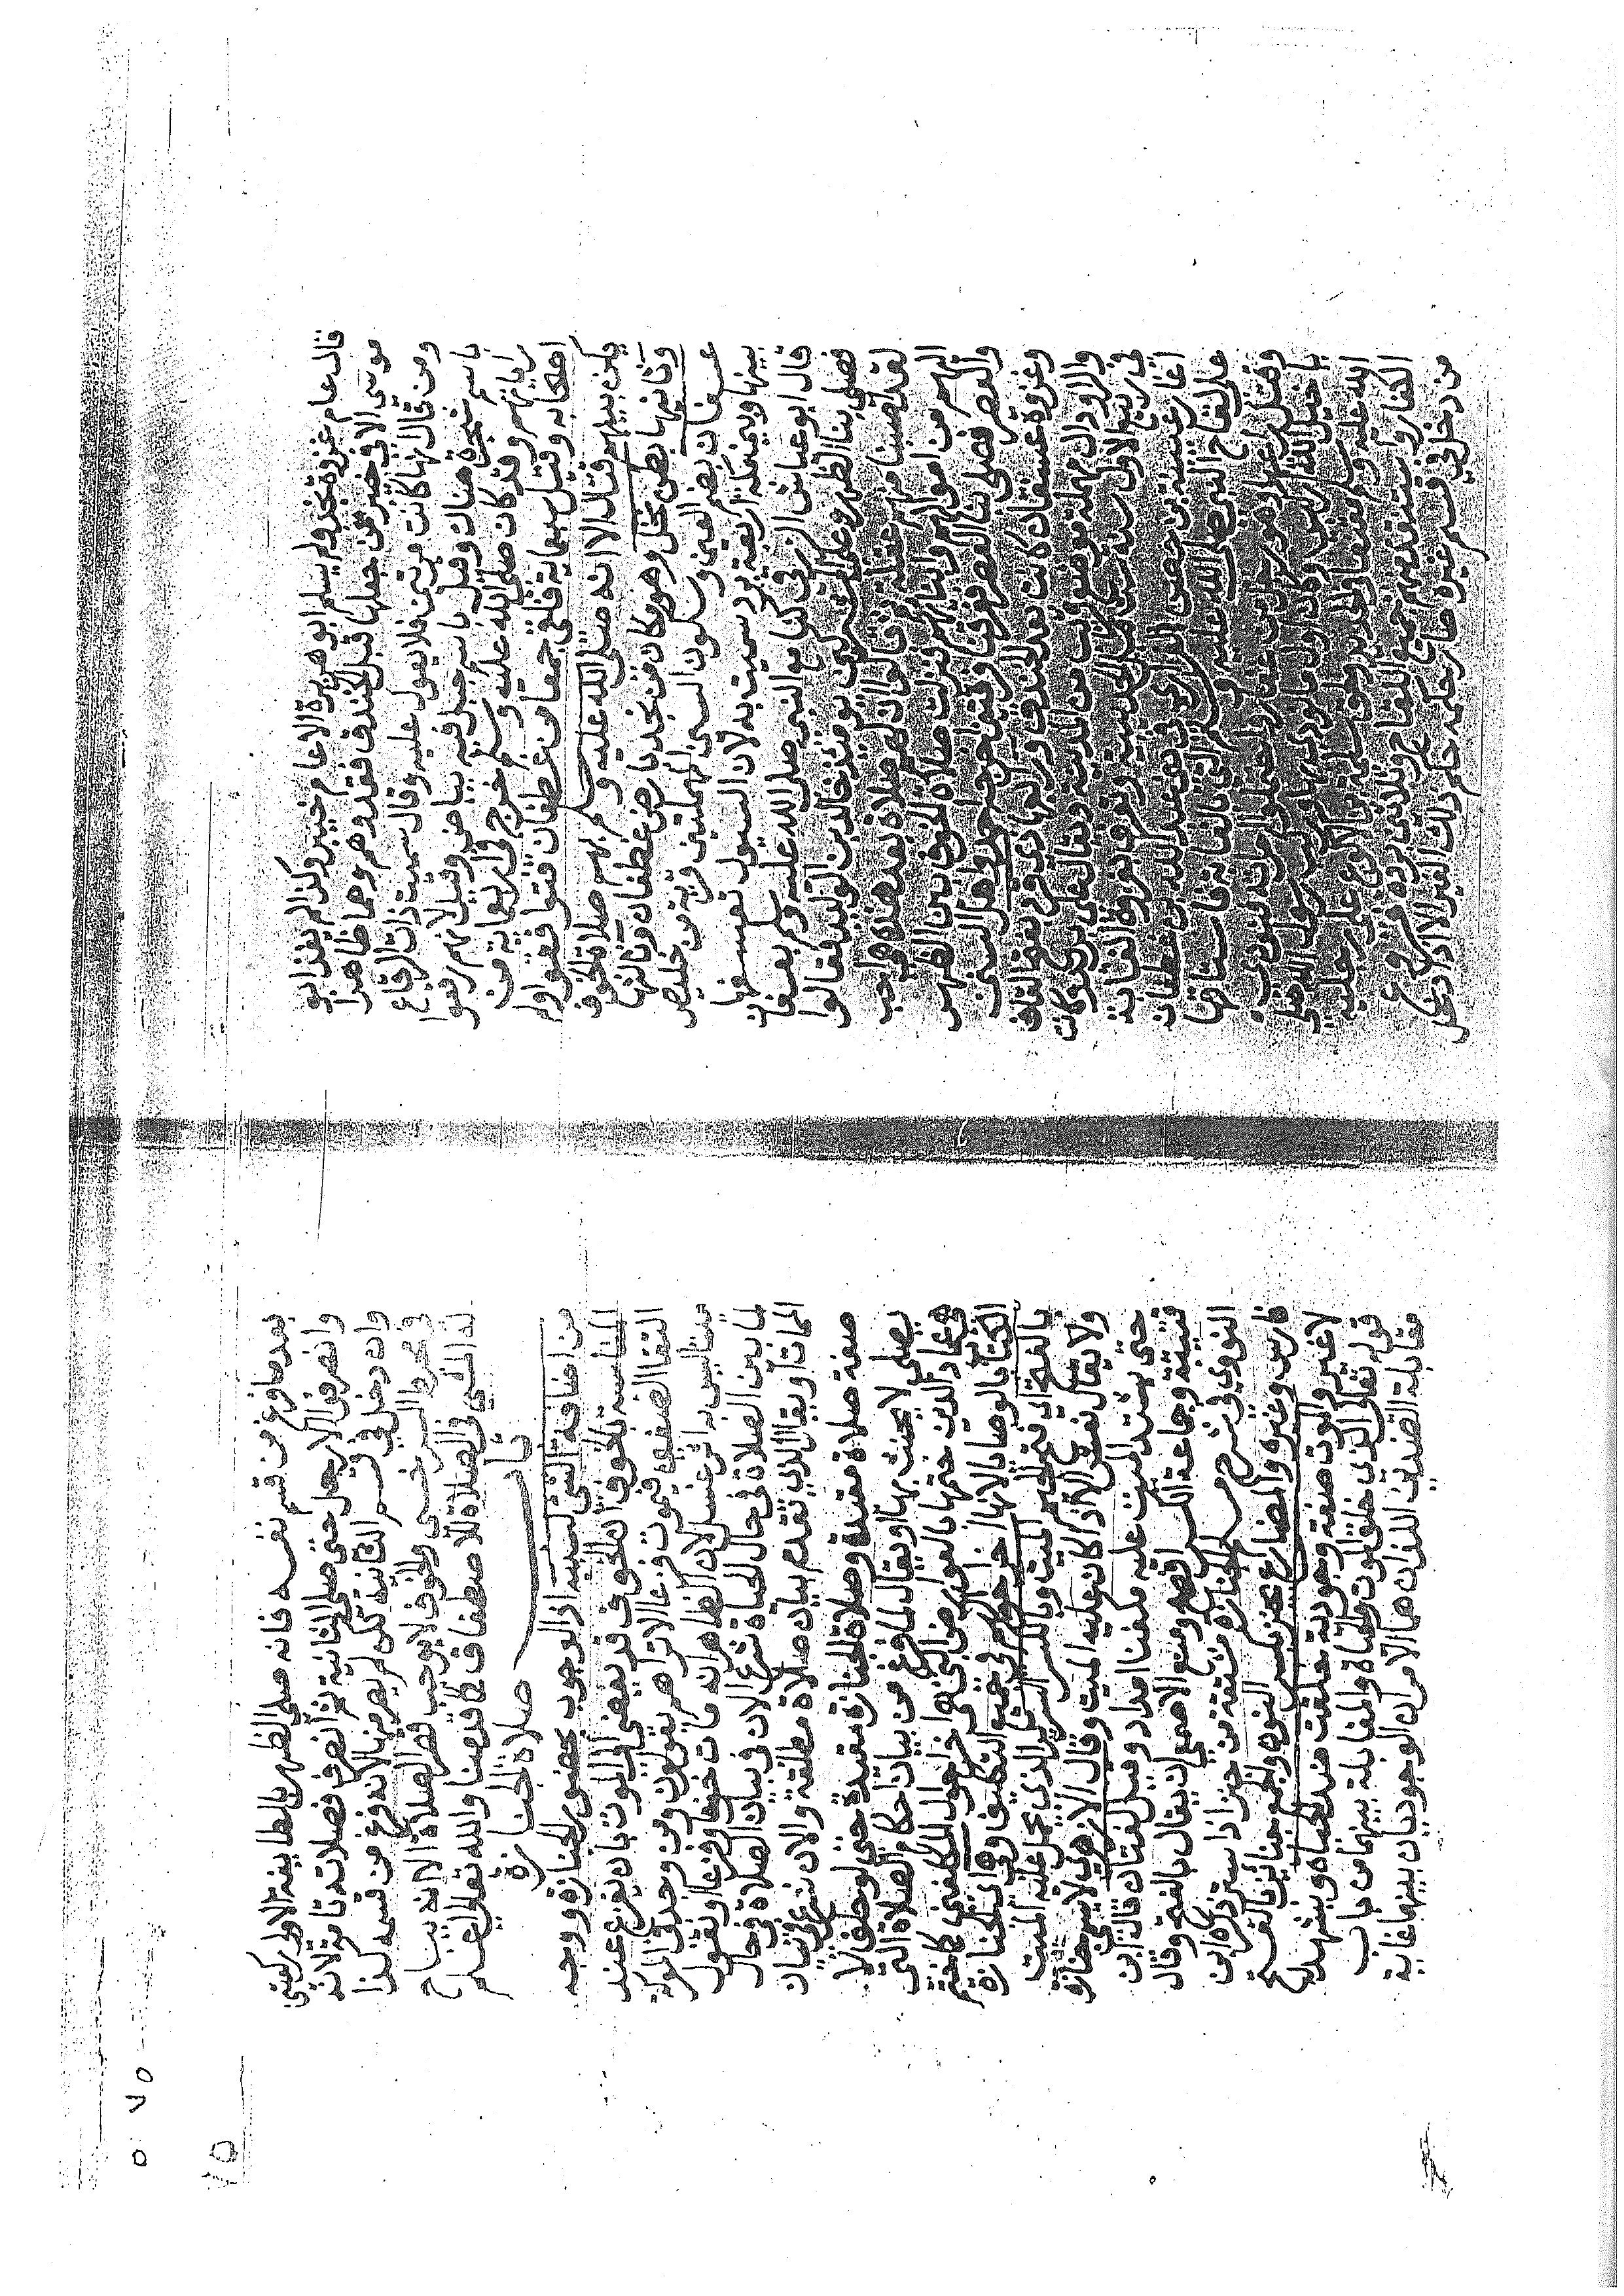 قال عام غزوة نجد ولم يسلم ابو هريرة الا عام خيبر وكذا لم يغزها ابو
موسى الا في خيبر فمن جعلها قبل الخندق فقد وهم وهما ظاهرا
ومن قال انها كانت مرتين فلا يعول عليه وقال سميت ذات الرقاع
باسم شجرة هناك وقيل باسم جبل فيه بياض وقيل لانهم رقعوا
راياتهم وقد كان صلى الله عليه وسلم خرج في اربعماية من
اصحابه وقيل سبعماية فلقي جمعا من غطفان ولم
يكن بينهم قتال الا انه صلى الله عليه وسلم بهم صلاة الخوف
وثانيها ببطن نخل وهو مكان من نجد بارض غطفان وثالثها
عسفان بضم العين وسكون السين المهملتين قرية من خليص
بينها وبين مكة اربعة برد سميت به لان السيول تعسفها
قال ابو عياش الزرقي كنا مع النبي صلى الله عليه وسلم بعسفان
فصلى بنا الظهر وعلى المشركين يومئذ خالد بن الوليد فقالوا
لقد اصبنا منهم غفلة ثم قالوا ان لهم صلاة بعد هذه هي احب
اليهم من اموالهم وابنائهم فنزلت صلاة الخوف بين الظهر
والعصر فصلى بنا العصر ففرقنا فرقتين اخرجه احمد واهل السنن
وغزوة عسفان كانت بعد الخندق ورابعها ذي قرد بفتح القاف
والراء ودال مهملة موضع قريب من المدينة ويقال على بريد كانت
في ربيع الاول سنة ست قبل الحديبية وتعرف بغزوة الغابة
اغار عيينة بن حصن الفزاري في عبد الله بن غطفان
على لقاح النبي صلى الله عليه وسلم التي بالغابة فاستاقها
وقتل راعيها وهو رجل من غفار واحتملوا امراته فنودي
يا خيل الله اركبي وكان اول ما نودي بها وركب رسول الله صلى
الله عليه وسلم مقنعا بالحديد ولحق سلمة بن الاكوع على رجليه
الكفار واستنقذ منهم جميع اللقاح وثلاثين بردة فروع
من دخل في قسم غيره صار حكمه حكم ذلك الغير الا اذا دخل
بعد ما فرغ من قسم نفسه فانه صلى الظهر بالطايفة الاولى ركعتين
وانصرفوا الا رجل حتى صلى الثانية ثم انصرف فصلاته تامة لانه
وان دخل في قسم الثانية لكن لم يصر منها لانه فرغ من قسمه كذا
في السرخسي والخوف لا يوجب قصر الصلاة الا انه يباح
له المشي في الصلاة للاصطفاف كما قدمنا والله تعالى اعلم
باب صلاة الجنازة
من اضافة الشي لسببه اذ الوجوب بحضور الجنازة ووجه
المناسبة بالخوف ان الخوف قد يفضي الى الموت بان يفزع عند
التقا الصفين فيموت فزعا الا تراهم يقولون ومن وجد في المعركة
ميتا ليس به اثر غسل لان الظاهر انه مات خوفا وفزعا ونقول
لما بين الصلاة في حال الحياة شرع الان في بيان الصلاة في حال
الممات او يقال الذي تقدم بيان صلاة مطلقة والان شرع في بيان
صفة صلاة مقيدة وصلاة الجنازة مقيدة حتى لو حلف لا
يصلي لا يحنث بها او يقال لما فرغ من بيان احكام الصلاة التي
هي عماد الدين ختمها بالعوارض التي هي اخر احوال المكلفين كما ختم
الكتاب بالوصايا لانها اخر احوالهم في جميع التكليف وهي اي الجنازة
بالفتح اي فتح الجيم الميت وبالكسر السرير الذي يحمل عليه الميت
ولا يقال نعش الا اذا كان عليه الميت وقال الازهري لا يسمى جنازة
حتى يشتد الميت عليه مكفنا وقيل لغتان قاله ابن
قتيبة وجماعة الكسر افصح ومنع الاصمعي ان يقال بالفتح وقال
النووي في شرح مسلم الجنازة مشتقة من جنز اذا ستر ذكره ابن
فارس وغيره والمضارع يجنز بكسر النون والجمع جنائز بالفتح
لا غير والموت صفة وجودية خلقت ضد الحياة ويشهد له
قوله تعالى الذي خلق الموت والحياة والمقابلة بينهما من باب
مقابلة الضدين اللذان هما الامران الوجوديان بينهما غاية
٧٥